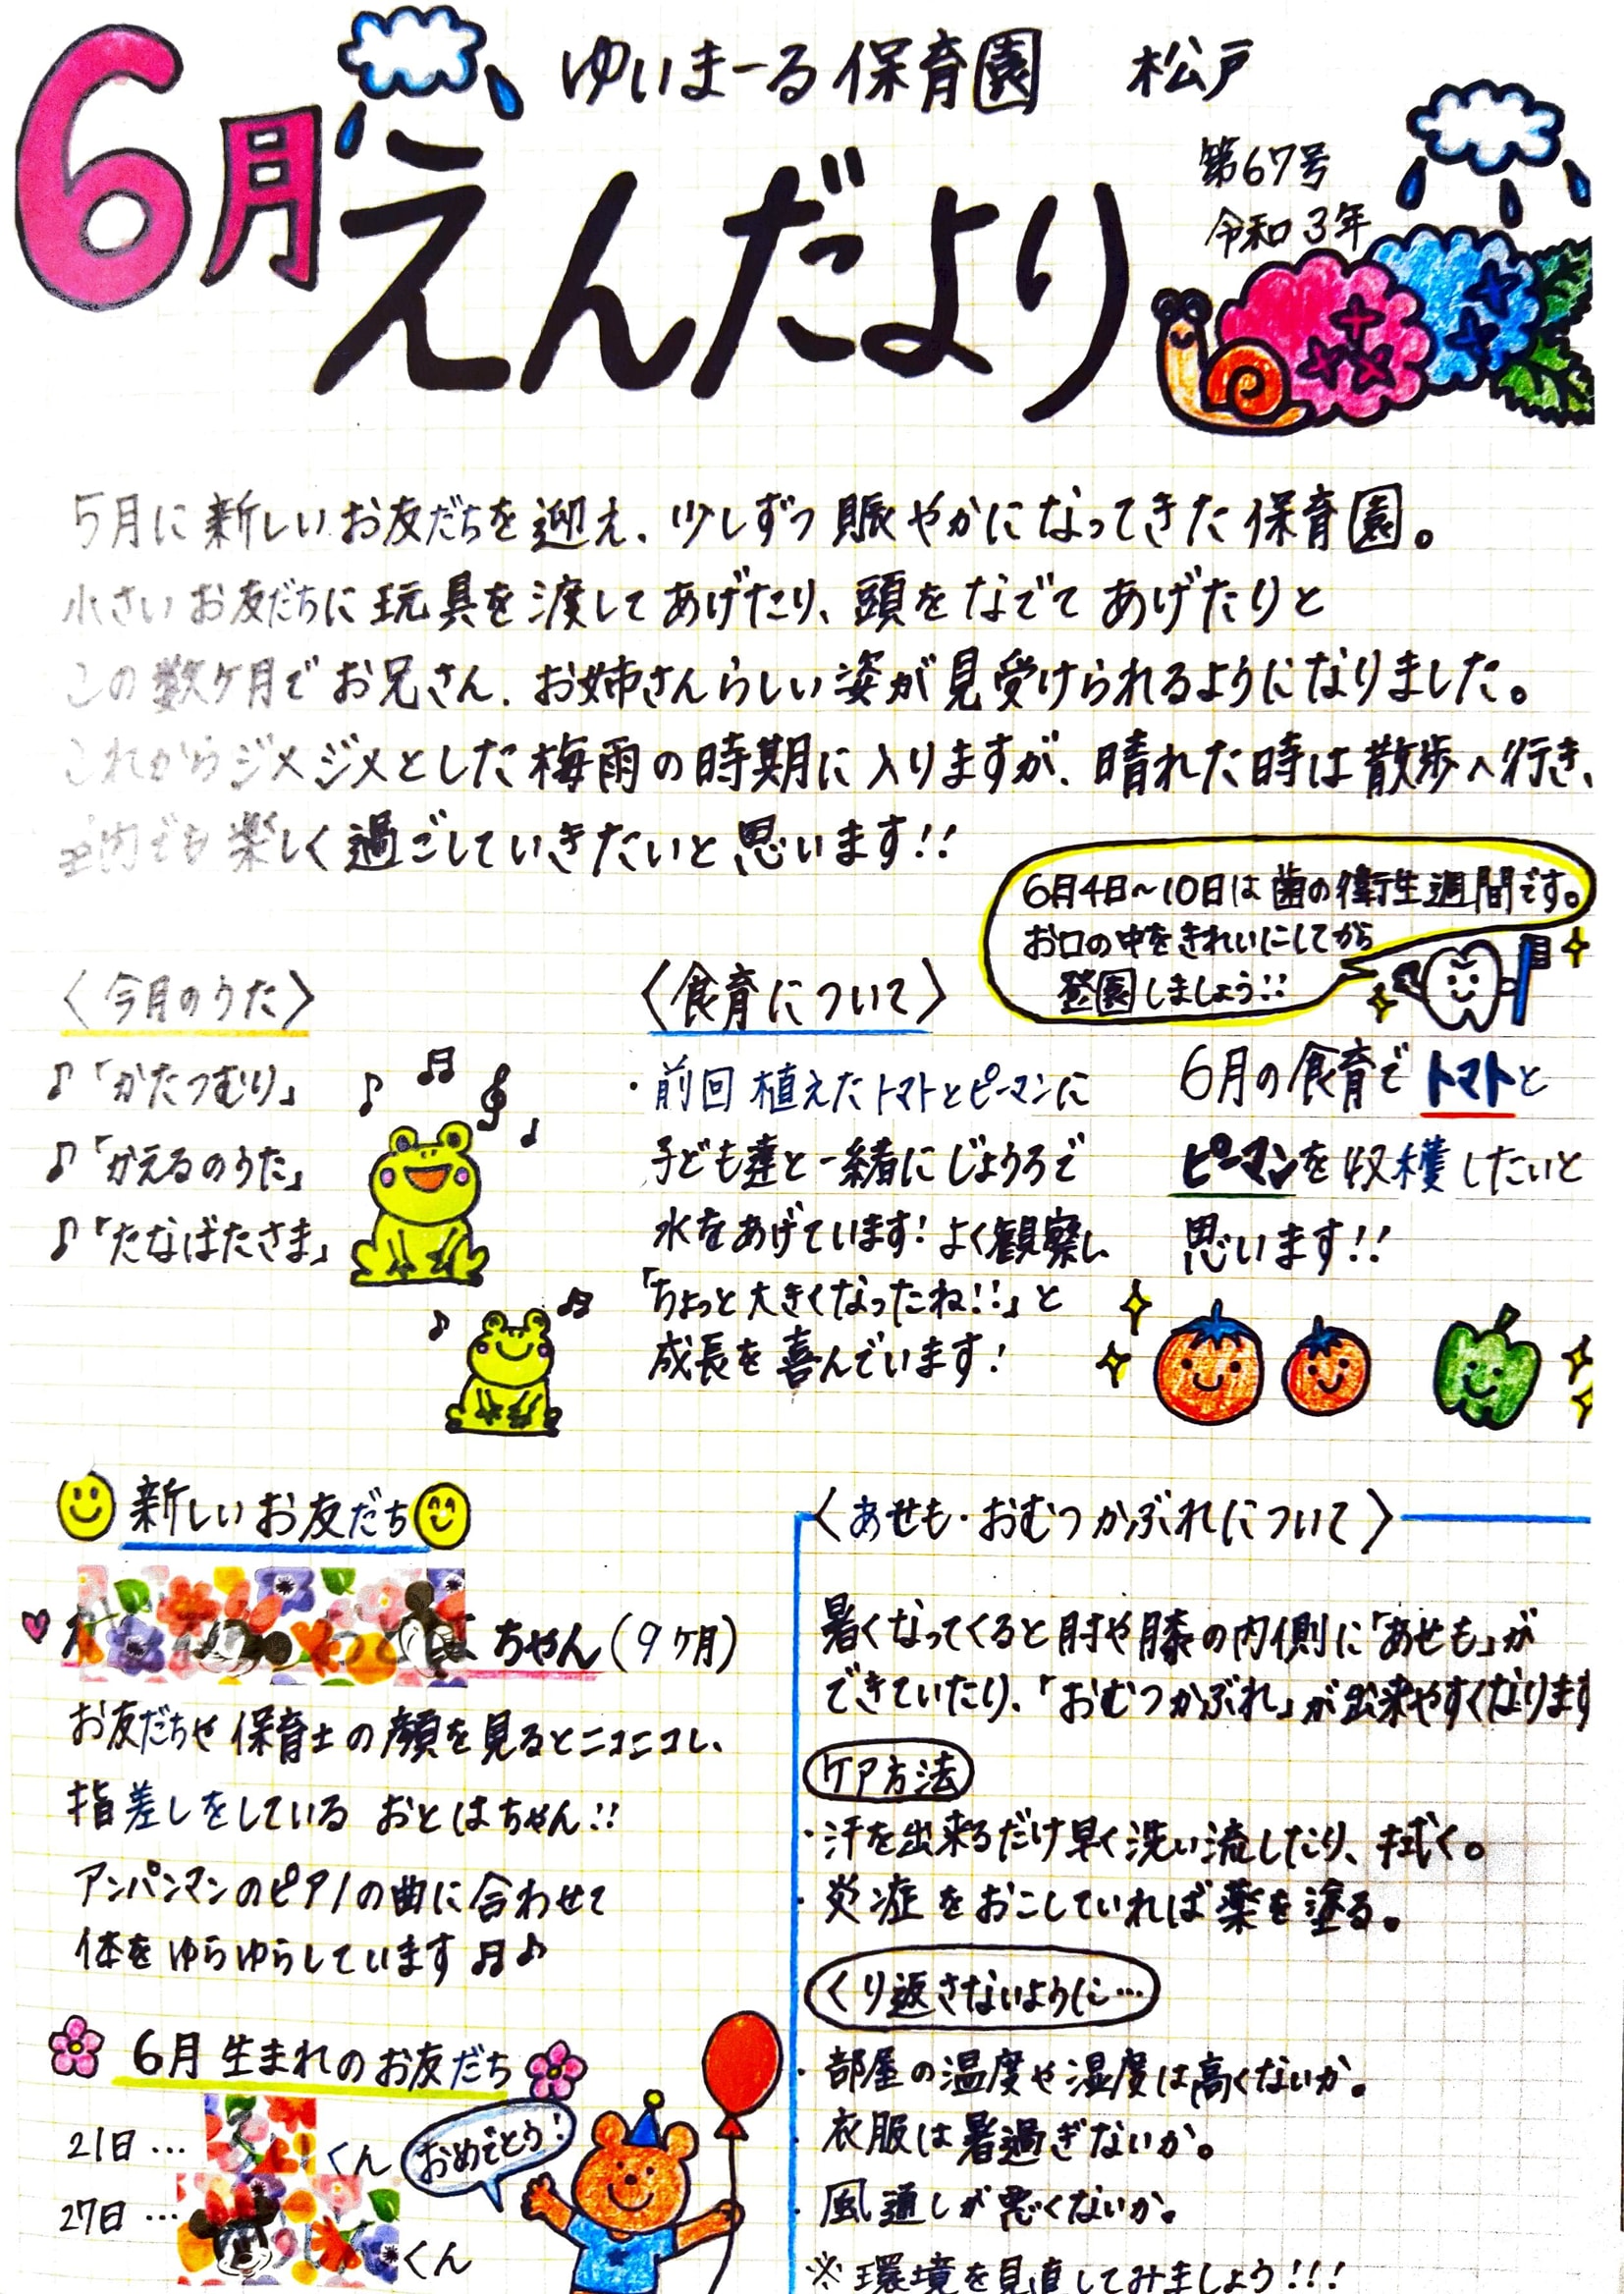 6月
ゆいまーる保育園 松戸
えんだより
第67号
令和3年
5月に新しいお友だちを迎え、少しずつ賑やかになってきた保育園。
小さいお友だちに玩具を渡してあげたり、頭をなでてあげたりと
この数ケ月でお兄さん、お姉さんらしい姿が見受けられるようになりました。
これからジメジメとした梅雨の時期に入りますが、晴れた時は散歩へ行き、
室内でも楽しく過ごしていきたいと思います!!
6月4日~10日は歯の衛生週間です。
お口の中をきれいにしてから
登園しましょう!!
〈今月のうた〉
♪「かたつむり」
♪「かえるのうた」
♪「たなばたさま」
〈食育について〉
・前回植えたトマトとピーマンに
子ども達と一緒にじょうろで
水をあげています!よく観察し、
「ちょっと大きくなったね!!」と
成長を喜んでいます!
6月の食育でトマトと
ピーマンを収穫したいと
思います!!
新しいお友だち
ちゃん(9ヶ月)
お友だちや保育士の顔を見るとニコニコし、
指差しをしているおとはちゃん!!
アンパンマンのピアノの曲に合わせて
体をゆらゆらしています♫♪
6月生まれのお友だち
21日… くん
27日… くん
おめでとう!
〈あせも・おむつかぶれについて〉
暑くなってくると肘や膝の内側に「あせも」が
できていたり、「おむつかぶれ」が出来やすくなります
ケア方法
・汗を出来るだけ早く洗い流したり、拭く。
・炎症をおこしていれば薬を塗る。
くり返さないように…
・部屋の温度や湿度は高くないか。
・衣服は暑過ぎないか。
・風通しが悪くないか。
※環境を見直してみましょう!!!